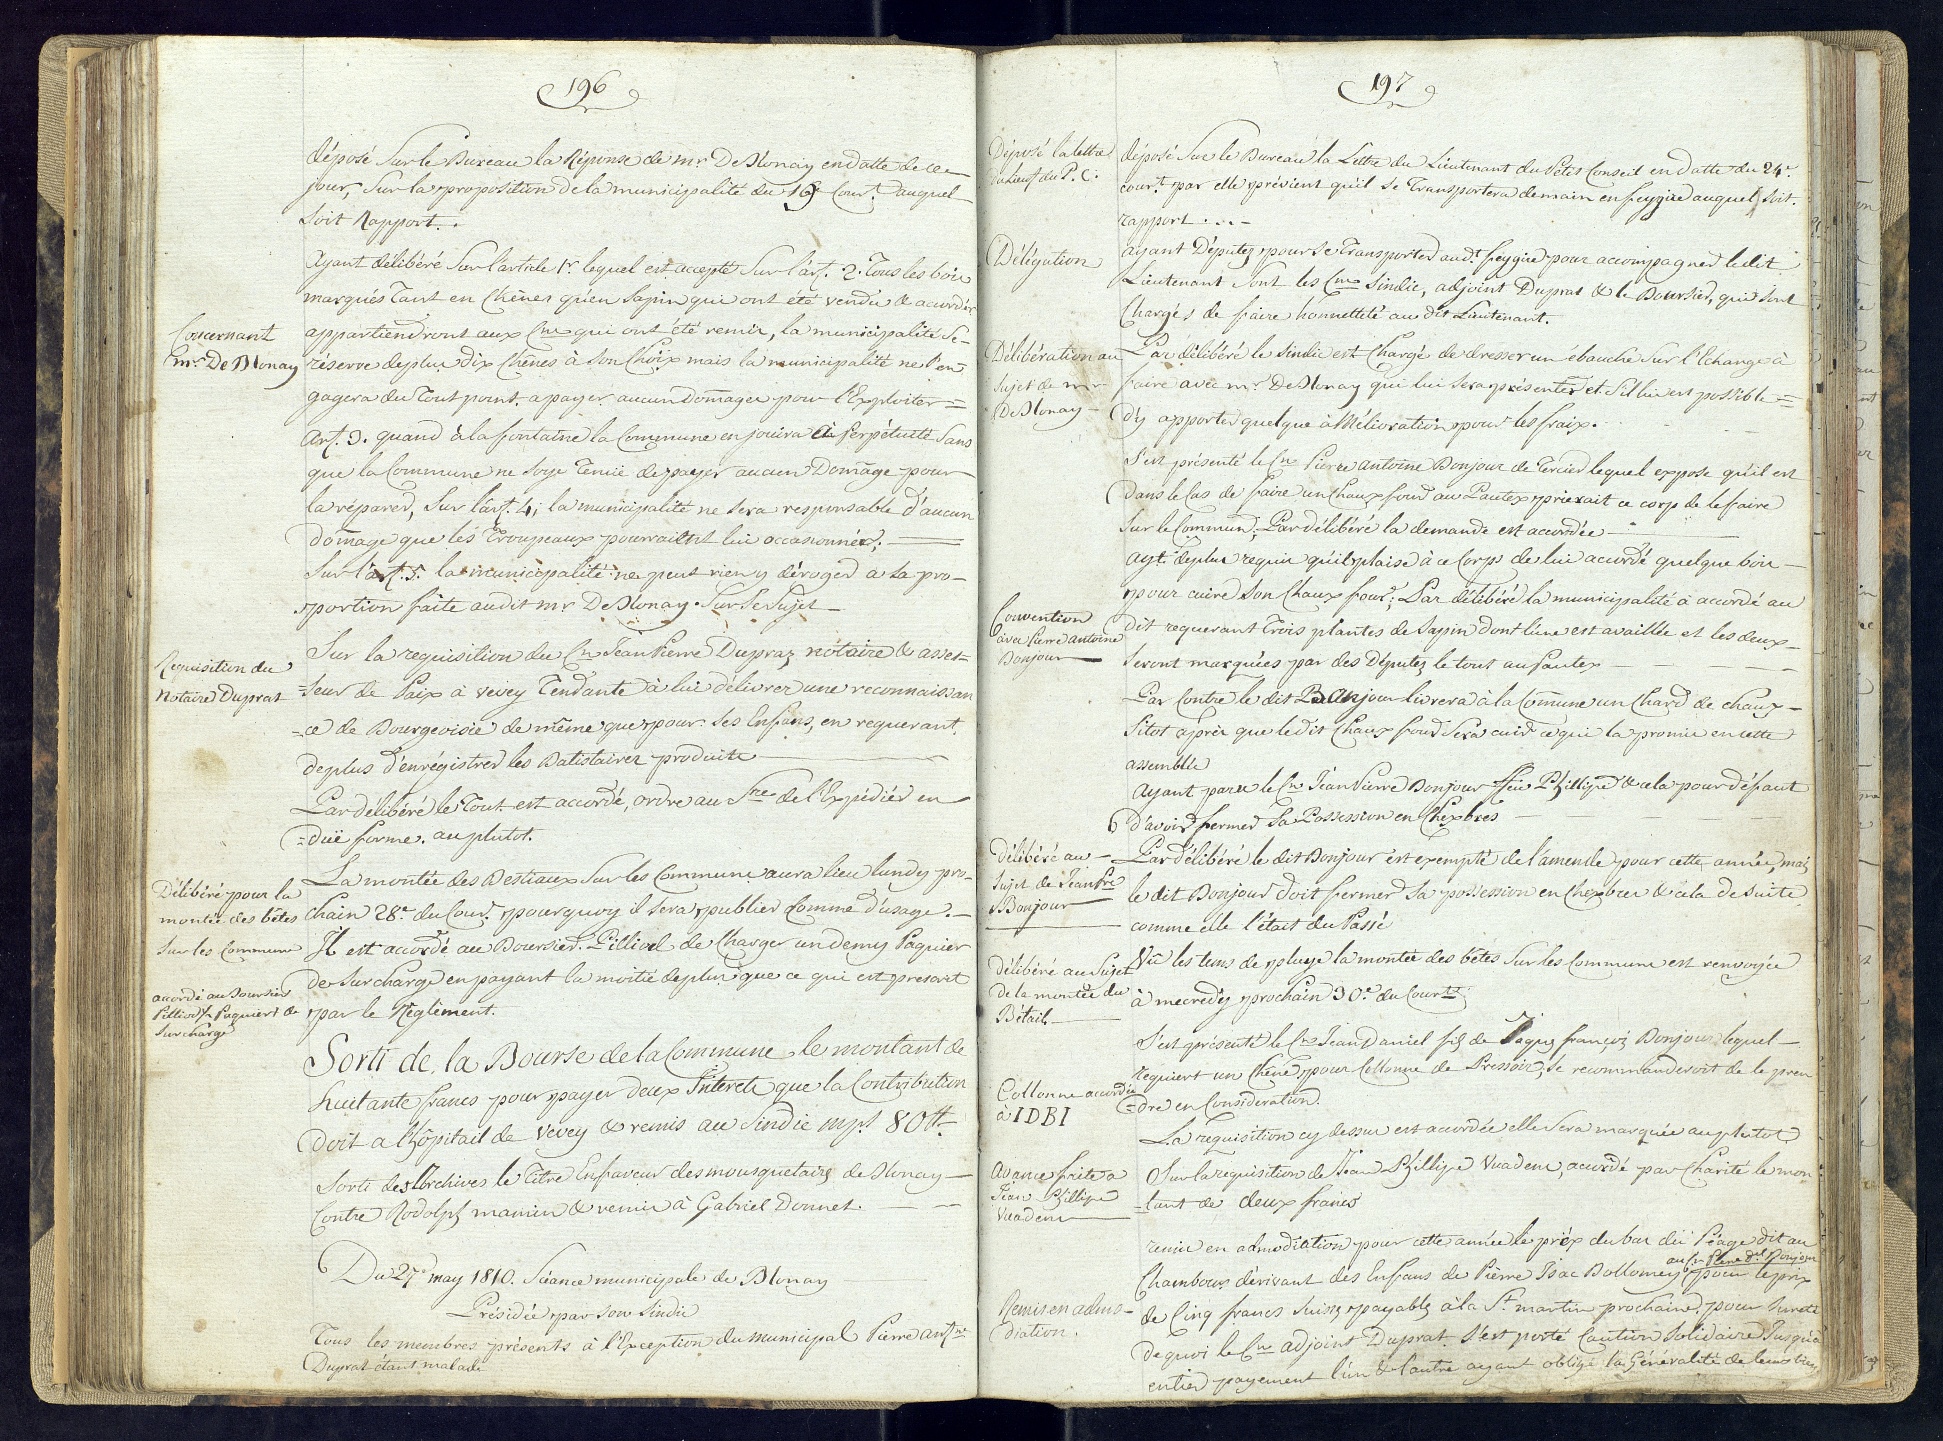 196
déposé Sur le Bureau la Réponse de mr De Blonay en datte de ce
jour, Sur la proposition de la municipalité du 16e Cour.t auquel
soit Rapport.
Ayant délibéré Sur l'article 1r. lequel est accepté Sur l'art. 2. Tous les bois
marqués Tant en Chênes qu'en Sapin qui ont été vendu & accordés
Concernant
mr. De Blonay
appartiendront aux Cns qui ont été remis, la municipalité Se
réserve deplus dix Chênes à Son Choix mais la municipalité ne S'en
gagera du Tout point a payer aucun Domages pour l'Exploiter =
Art. 3. quand à la fontaine la Commune en jouira à perpétuité Sans
que la Commune ne Soye Tenüe de payer aucun Domage pour
la réparer, Sur l'art. 4, la municipalité ne Sera responsable d'aucun
domage que les Troupeaux pourraient lui occasionner; —
Sur l'art. 5. la municipalité ne peut rien y déroger a la pro-
portion faite au dit mr De Blonay. Sur Ce Sujet —
Requisition du
Notaire Duprat
Sur la requisition du Cn Jean Pierre Dupraz notaire & asses=
=seur de Paix à Vevey Tendante à lui délivrer une reconnaissan
=ce de Bourgeoisie de même que pour Ses Enfans, en requerant
deplus d'enrégistrer les Batistaires produits —
Par délibéré le Tout est accordé, ordre au Sre de l'Expédier en
=düe forme. au plutot.
Délibéré pour la
montée des bêtes
Sur les Commune
La montée des Bestiaux Sur les Commune aura lieu lundy pro-
chain 28e du Cour.t pourquoy il sera publier Comme d'usage. —
accordé au Boursier
Pilliod ½ Paquiers de
Surcharge
Il est accordé au Boursier Pilliod de Charger un demy Paquier
de Surcharge en payant la moitié deplus que ce qui est prescrit
par le Réglement.
Sorti de la Bourse de la Commune le montant de
huitante francs pour payer deux Interets que la Contribution
Doit a l'hôpitail de Vevey & remis au Sindic mps. 80 ₶
Sorti des Archives le Titre En faveur des mousquetaires de Blonay —
Contre Rodolph mamin & remis à Gabriel Donnet. — —
Du 27e may 1810. Séance municipale de Blonay
Présidée par Son Sindic
Tous les membres présents à l'Exception du municipal Pierre antne
Duprat étant malade
197
Déposé la lettre
du Lieut du P. C.
déposé Sur le Bureau la Lettre du Lieutenant du Petit Conseil en datte du 24e
cour.t par elle prévient qu'il se Transportera demain en feygire auquel Soit.
rapport. - -
Délégation
ayant Députez pour Se Transporter aud.t feygire pour accompagner ledit
Lieutenant Sont les Cns Sindic, adjoint Duprat & le Boursier, qui Sont
Chargés de faire honnettété au dit Lieutenant.
Délibération au
Sujet de mr
De Blonay —
Par délibéré le Sindic est Chargé de dresser un ébauche Sur l'Echange à
faire avec mr. De Blonay qui lui Sera présenter et S'il lui est possible =
d'y apporter quelque aMélioration pour les fraix.
S'est présenté le Cn Pierre Antoine Bonjour de Tercier lequel expose qu'il est
dans le Cas de faire un Chaux four au Pautex prierait ce corps de le faire
Sur le Commun; Par délibéré la demande est accordée —
ayt. deplus requis qu'il plaise à ce Corps de lui accordé quelque bois —
Convention
avec Pierre Antoine
Bonjour
pour cuire Son Chaux four; Par délibéré la municipalité à accordé au
dit requerant Trois plantes de Sapin dont l'une est availlée et les deux —
Seront marquées par des Députez le tout au Pautex —
Par Contre le dit Bonjour livrera à la Comune un Chard de chaux —
Sitot après que ledit Chaux four Sera cuit ce qui la promis en cette
assemblée
Ayant paru le Cn Jean Pierre Bonjour feu Phillipe & cela pour défaut
d'avoir fermer Sa Possession en Chexbres —
Délibéré au —
Sujet de Jean Pre
Bonjour
Par délibéré le dit Bonjour est exempté de l'amende pour cette année, mais
le dit Bonjour doit fermer Sa possession en Chexbres & cela de Suite,
comme elle l'était du Passé
Délibéré au Sujet
de la montée du
Bétail —
Vû les tems de pluye la montée des bêtes Sur les Commune est renvoyée
à mecredy prochain 30e du Court
S'est présenté le Cn Jean Daniel fils de Jaques françois Bonjour lequel —
Collonne accordée
à IDBI
requiert un Chêne pour Collonne de Pressoir, Se recommanderoit de le pren
=dre en Considération.
La requisition cy dessus est accordée elle Sera marquée au plutot
Avance faite a
Jean Phillipe
Vuadens
Sur la requisition de Jean Phillipe Vuadens, accordé par Charité le mon
=tant de deux francs
remis en admodiation pour cette année le préx du bas du Péage dit au
au Cn Pierre Dl Bonjour
Chambour dérivant des Enfans de Pierre Isac Bollomey pour le prix
Remis en admo-
diation.
de Cinq francs Suisse payable à la St. martin prochain, pour Sureté
de quoi le Cn adjoint Duprat S'est porté Caution Solidaire Jusqu'à
entier payement l'un & l'autre ayant obligé la Généralité de leurs biens